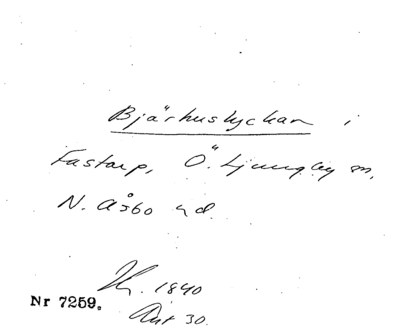 Bjärhuslyckan i
Fastarp, Ö. Ljungby sn,
N. Åsbo hd.
1840
Nr 7259.
Akt 30.